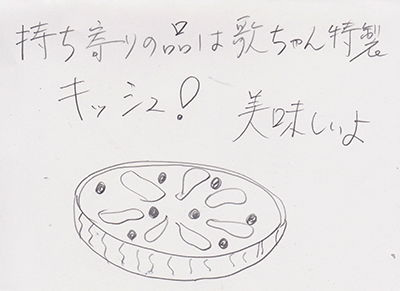 持ち寄りの品は歌ちゃん特製
キッシュ!
美味しいよ